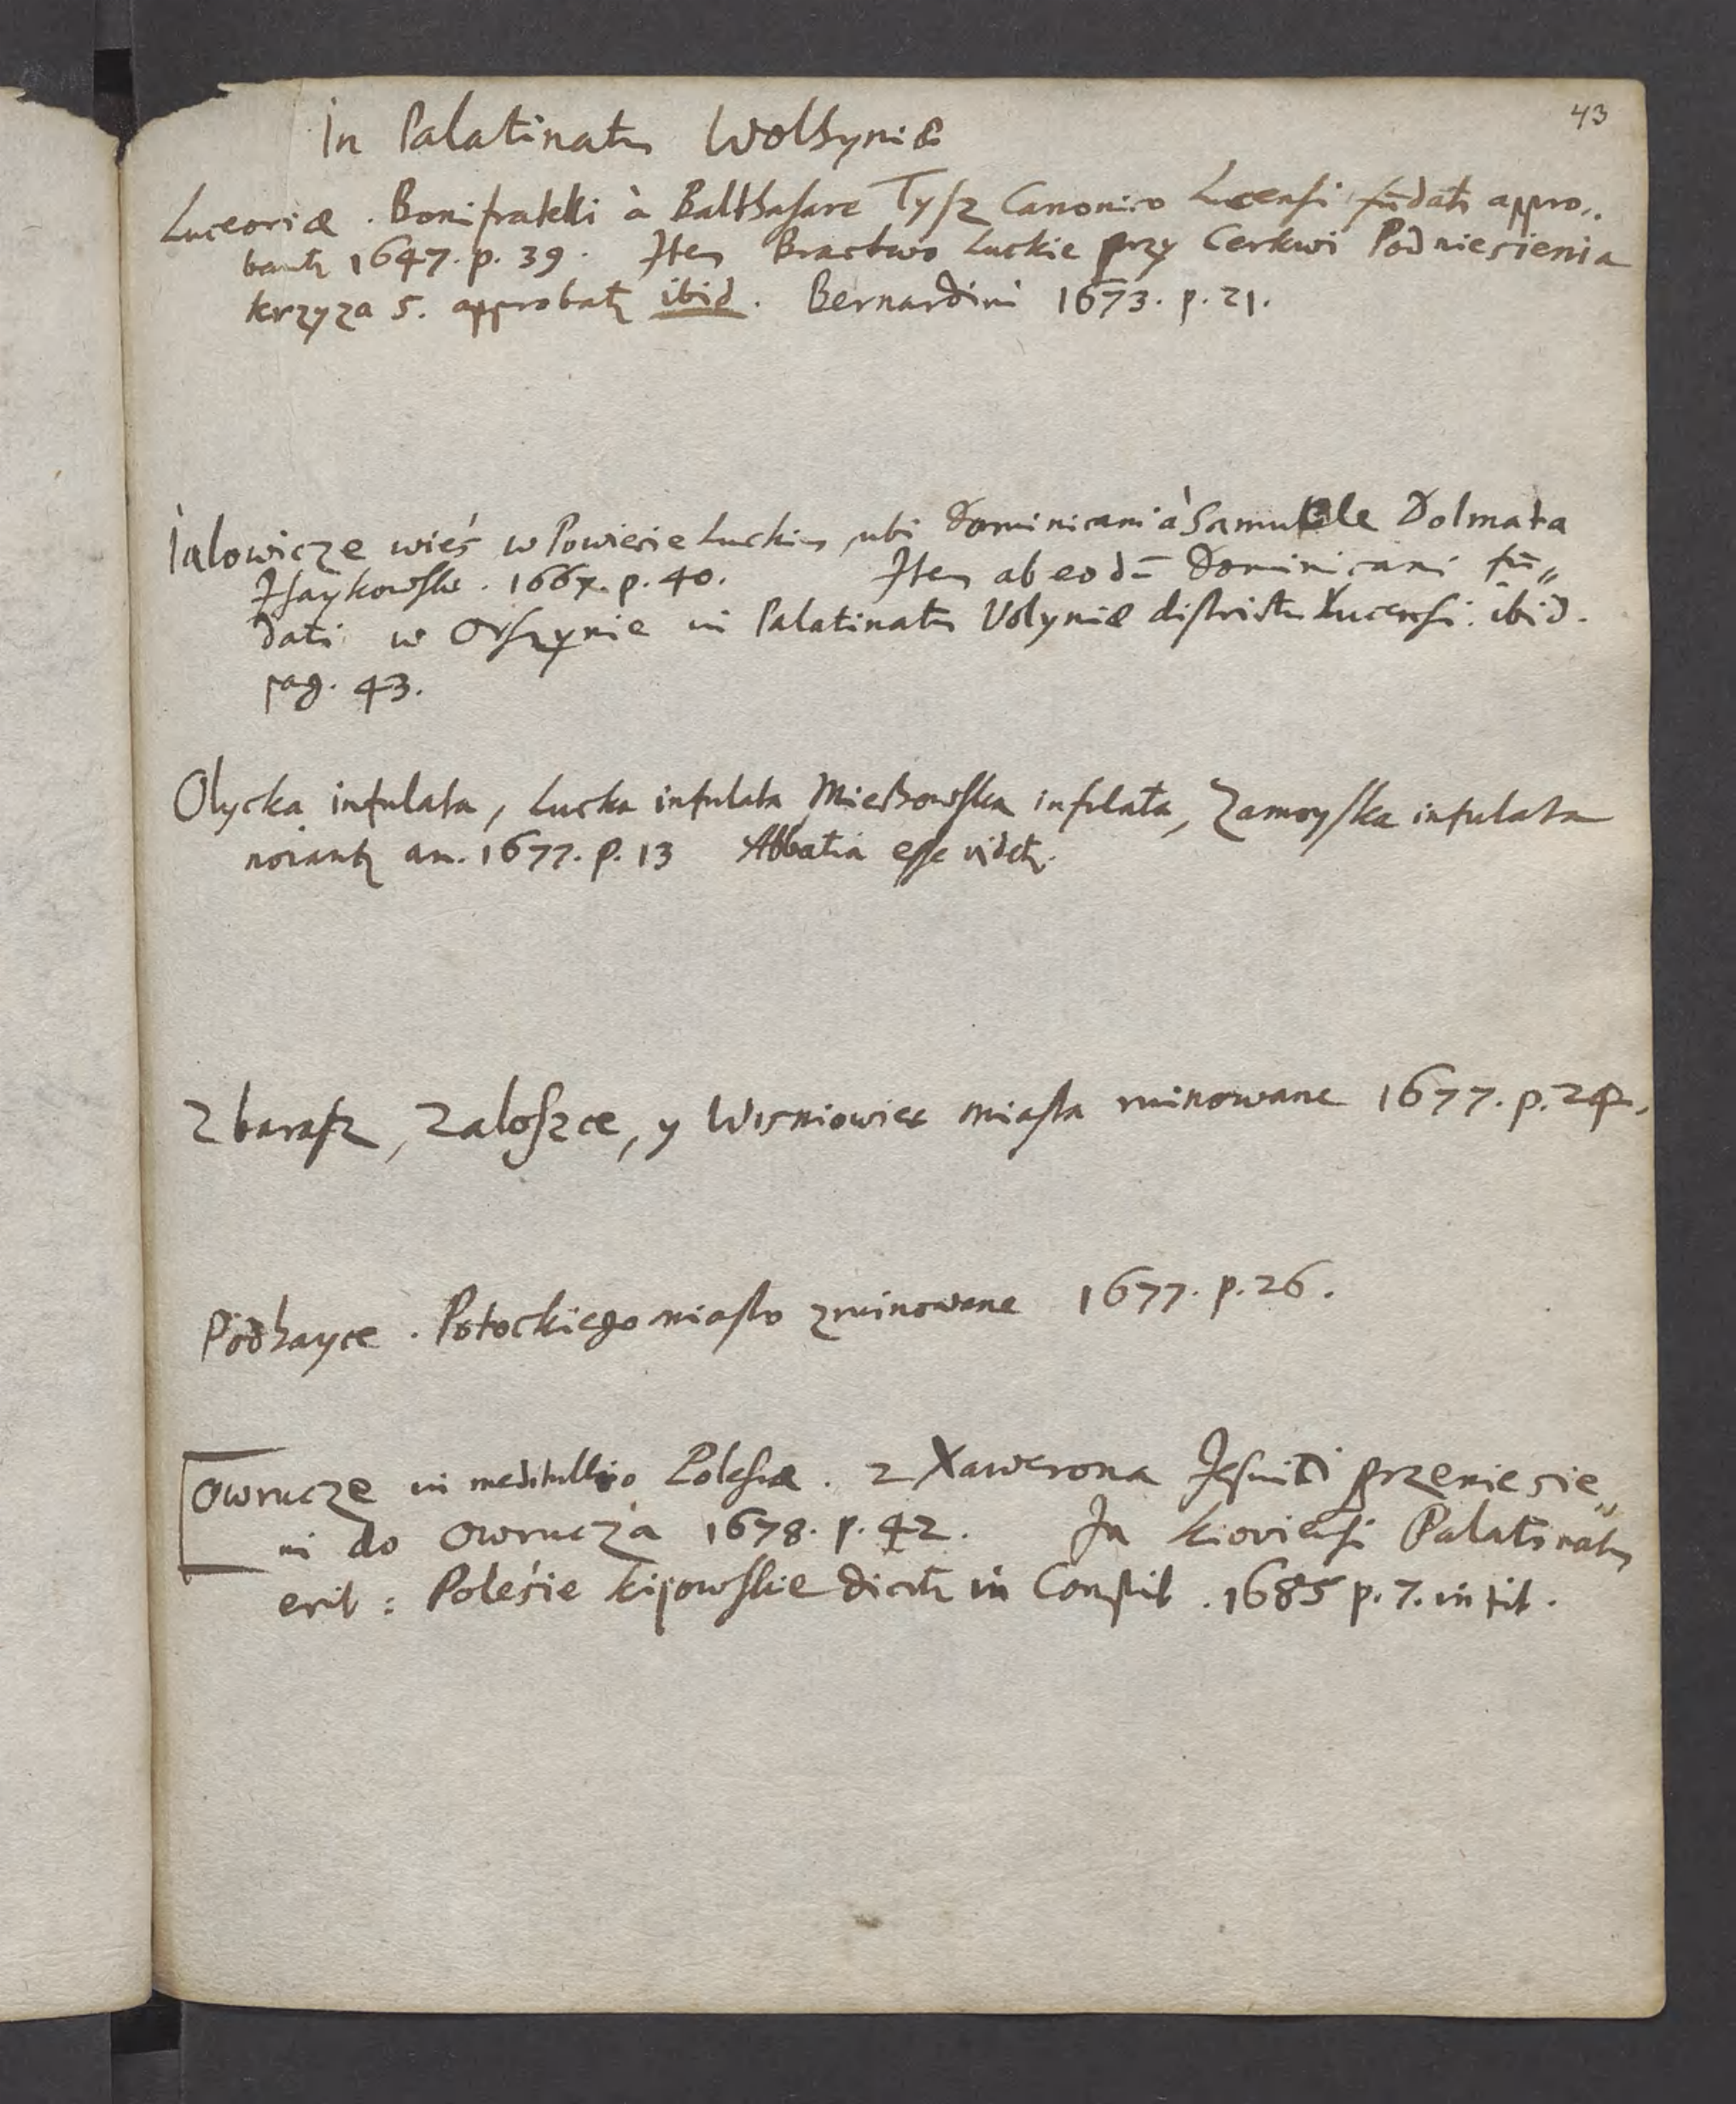 43
In Palatinatu Wolhyniæ
Luceoriæ. Bonifratelli à Balthasare Tysz Canonico Lucensi fūdati appro„
bant 1647. p. 39. Item Bractwo Luckie przy Cerkwi Podniesienia
krzyza S. approbat ibid. Bernardini 1673. p. 21.
Ialowicze wieś w Powiecie Luckim, ubi Dominicani à Samuele Dolmata
1667. p. 40. Item ab eodē Dominicani fū„
dati w Orszynie in Palatinatu Volyniæ districtu Lucensi. ibid.
pag. 43.
Olycka infulata, Lucka infulata Miechowska infulata, Zamoyska infulata
an. 1677. p. 13 Abbatia esse videt.
Zbarasz, Zaloszce, y Wisniowiec miasta ruinowane 1677. p. 24.
Podhayce. Potockiego miasto zruinowane 1677. p. 26.
Owrucze in meditullio Polesiæ. z Xawerona Jesuiti przeniesie„
ni do Owrucza 1678. p. 42. In Kioviensi Palatinatu
erit: Polesie kijowskie dicit in Constit. 1685 p. 7. in tit.